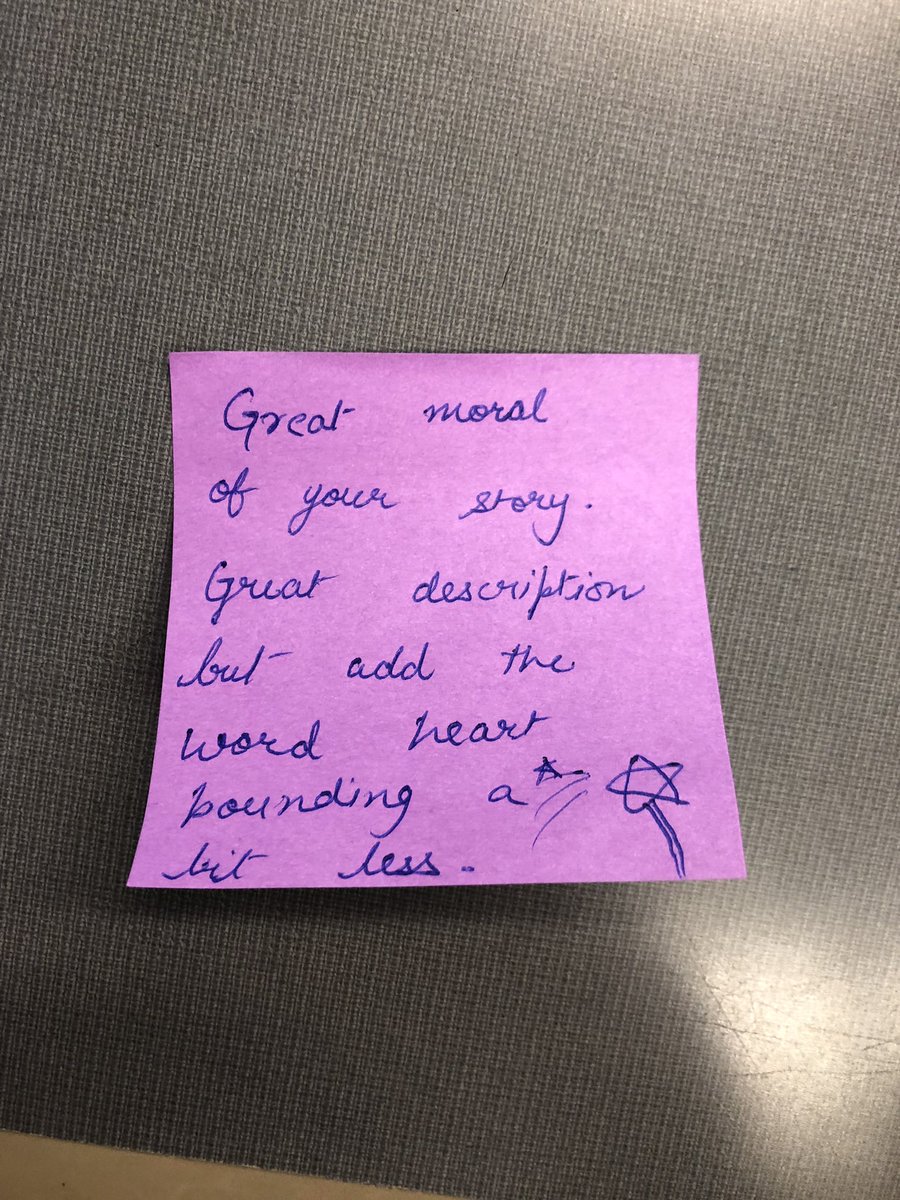 Great moral
of your story.
Great description
but add the
word heart
pounding a
bit less.